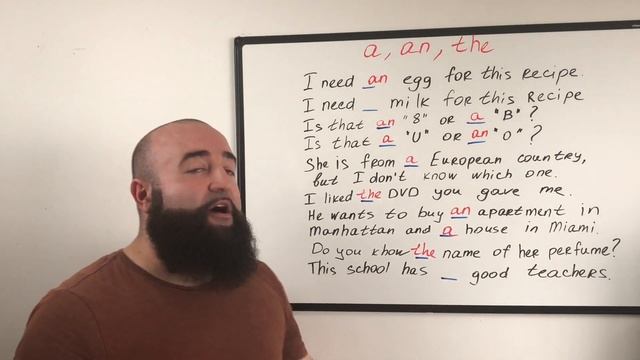 a, an, the
I need an egg for this recipe.
I need _ milk for this Recipe
Is that an "8" or a "B"?
Is that a "U" or an "O"?
She is from a European country,
but I don't know which one.
I liked the DVD you gave me.
He wants to buy an apartment in
Manhattan and a house in Miami.
Do you know the name of her perfume?
This school has _ good teachers.